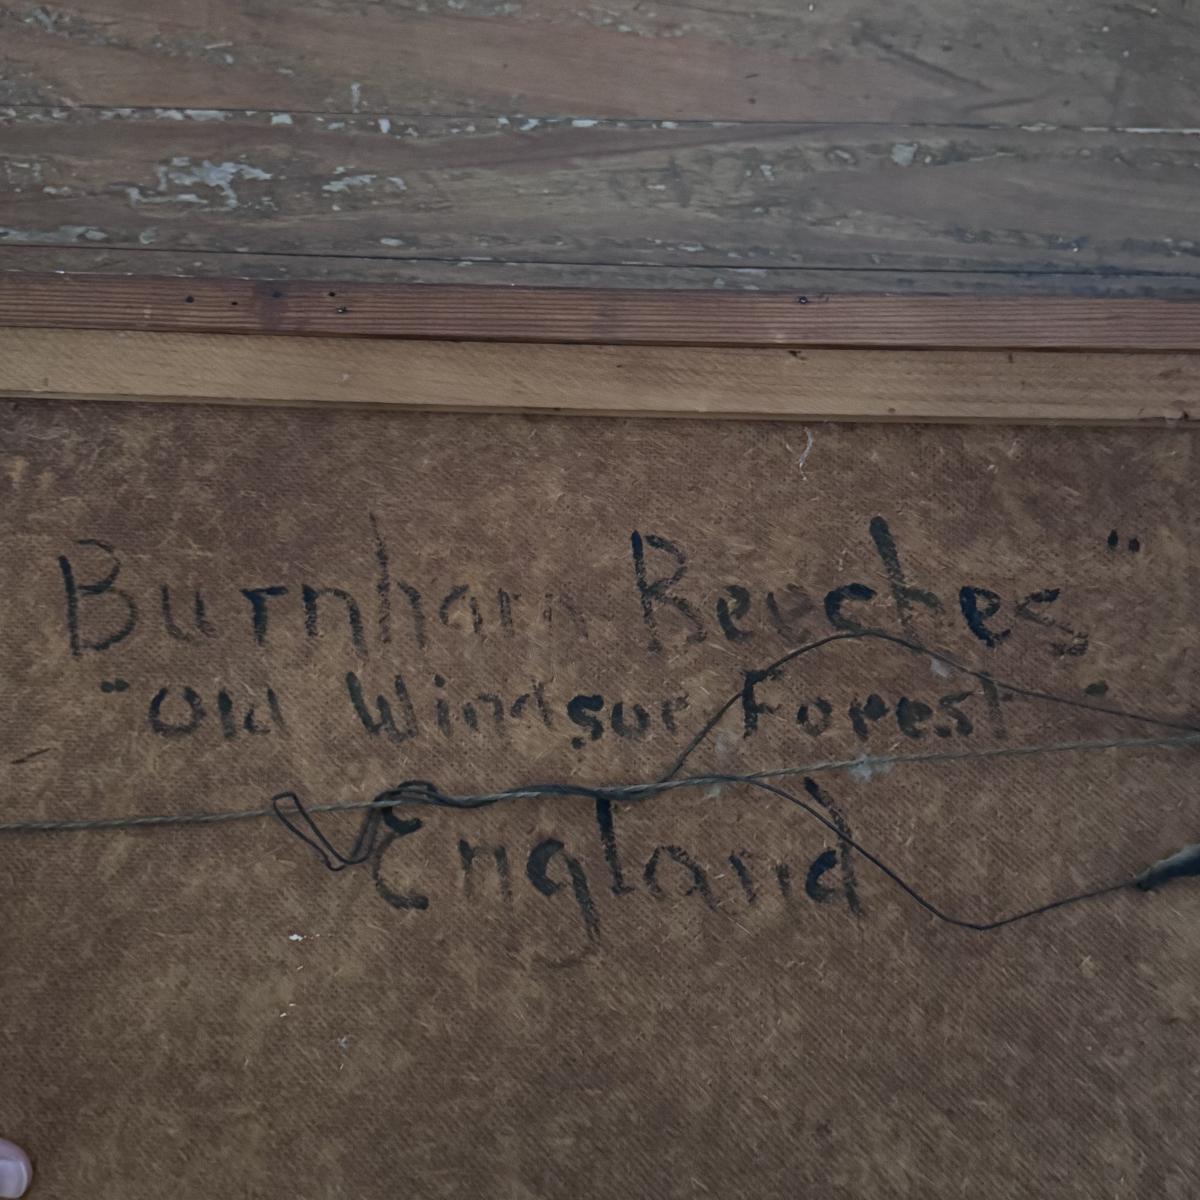 Burnham Beeches"
"Old Windsor Forest"
England